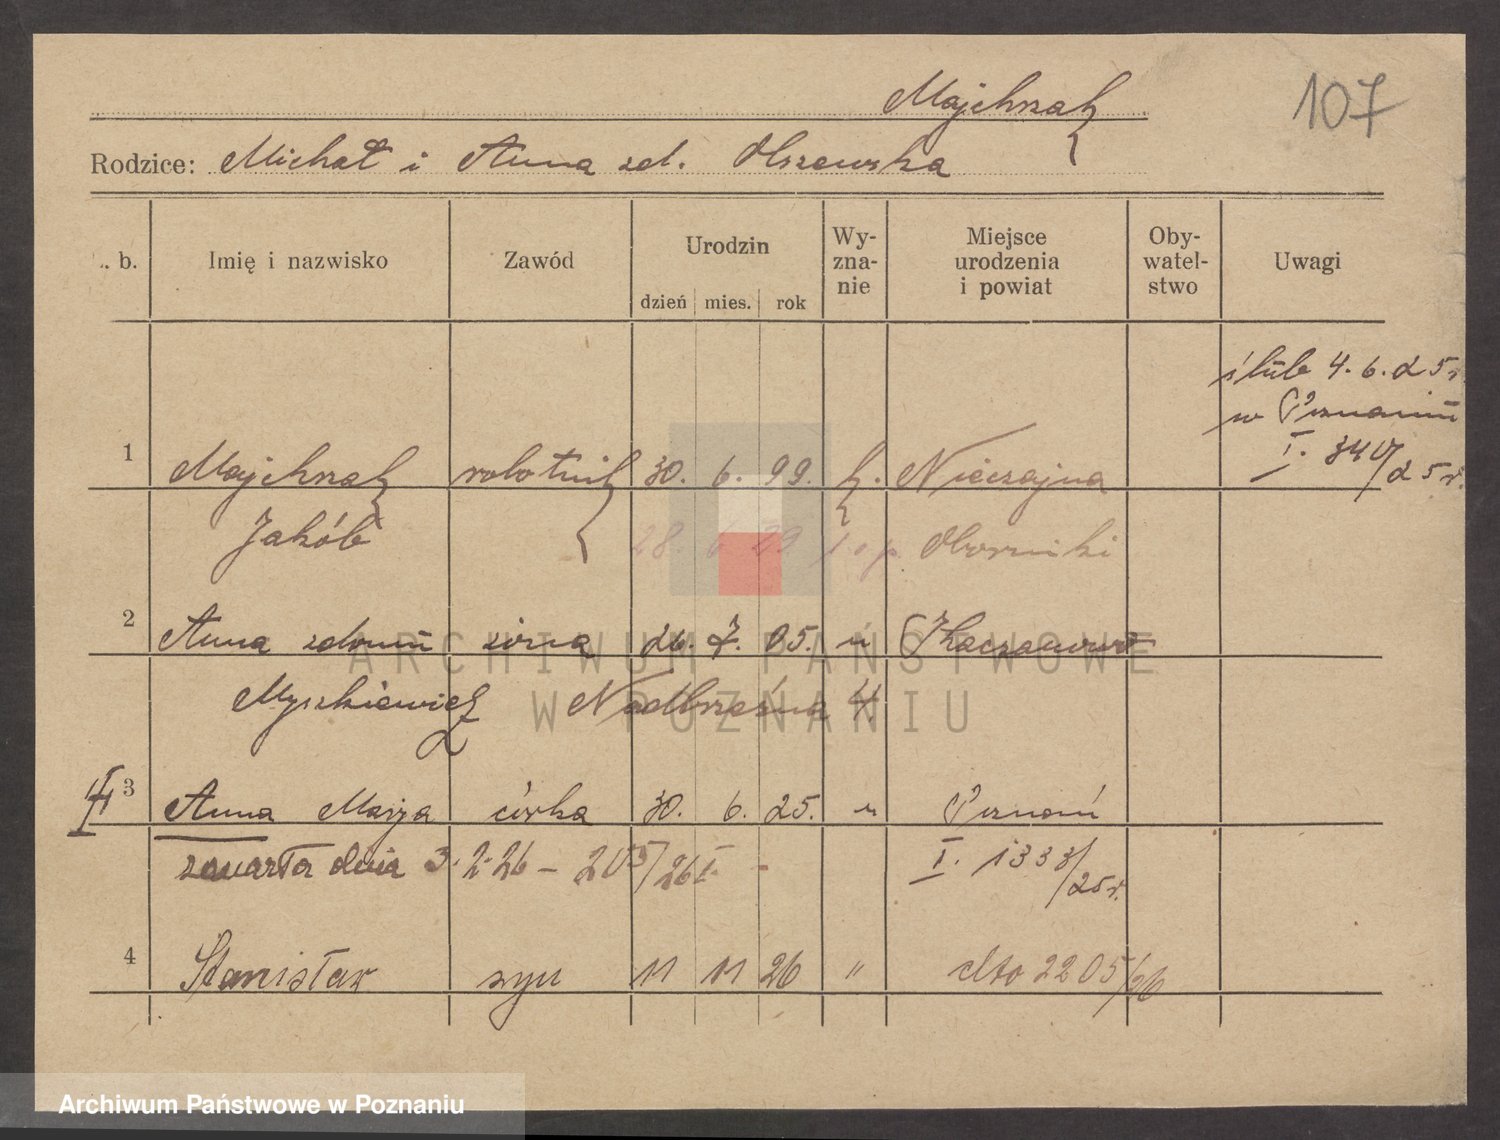 Majchrzak
107
Rodzice: Michał i Anna zd. Olszewska
b. Imię i nazwisko Zawód Urodzin dzień mies. rok Wy-zna-nie Miejsce urodzenia i powiat Oby-watel-stwo Uwagi
ślub 4. 6. 25 r.
w Poznaniu
I. 340/25 r.
1 Majchrzak robotnik 30. 6. 99. k. Nieczajna
Jakób 28. 6 99 Oborniki
2 Anna zdomu żona 26. 7. 05. "
Myszkiewicz Nadbrzeżna 4.
3 Anna Marja córka 30. 6. 25. " Poznań
zmarła dnia 3. 2. 26 – 205/26 I I. 1333/25 r.
4 Stanisław syn 11 11 26 " dto 2205/26
ARCHIWUM PAŃSTWOWE
W POZNANIU
Archiwum Państwowe w Poznaniu